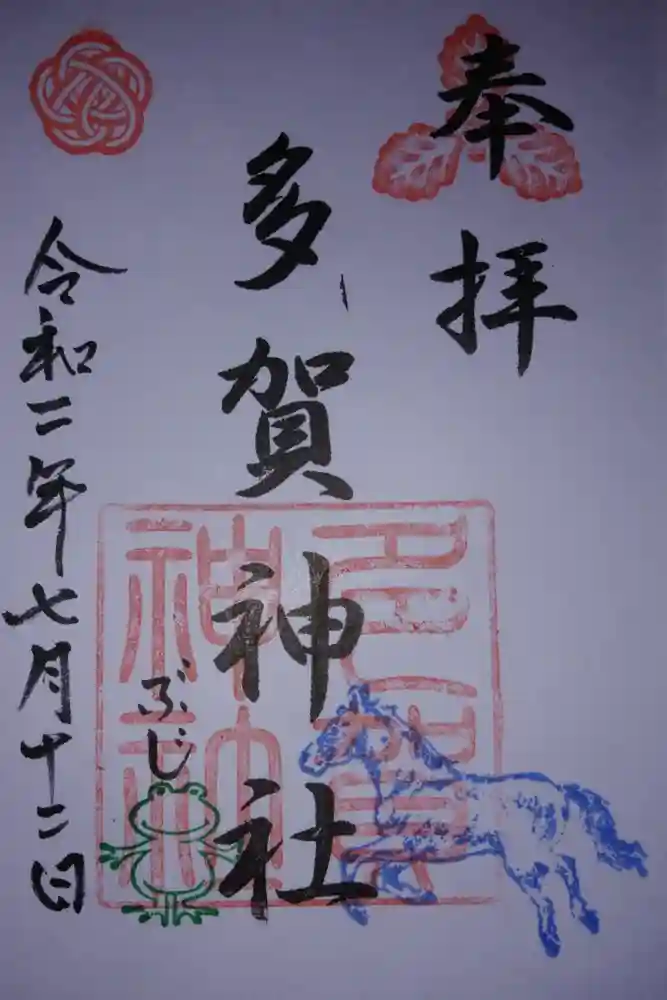 奉拝
多賀神社
多賀神社
ぶじ
令和二年七月十二日